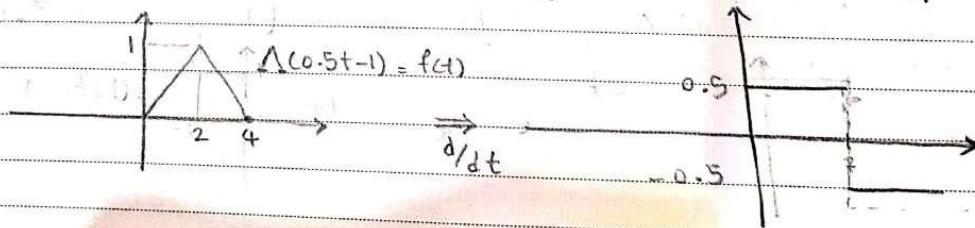 1
Λ(0.5t-1) = f(t)
2 4
⇒
d/dt
0.5
2
-0.5